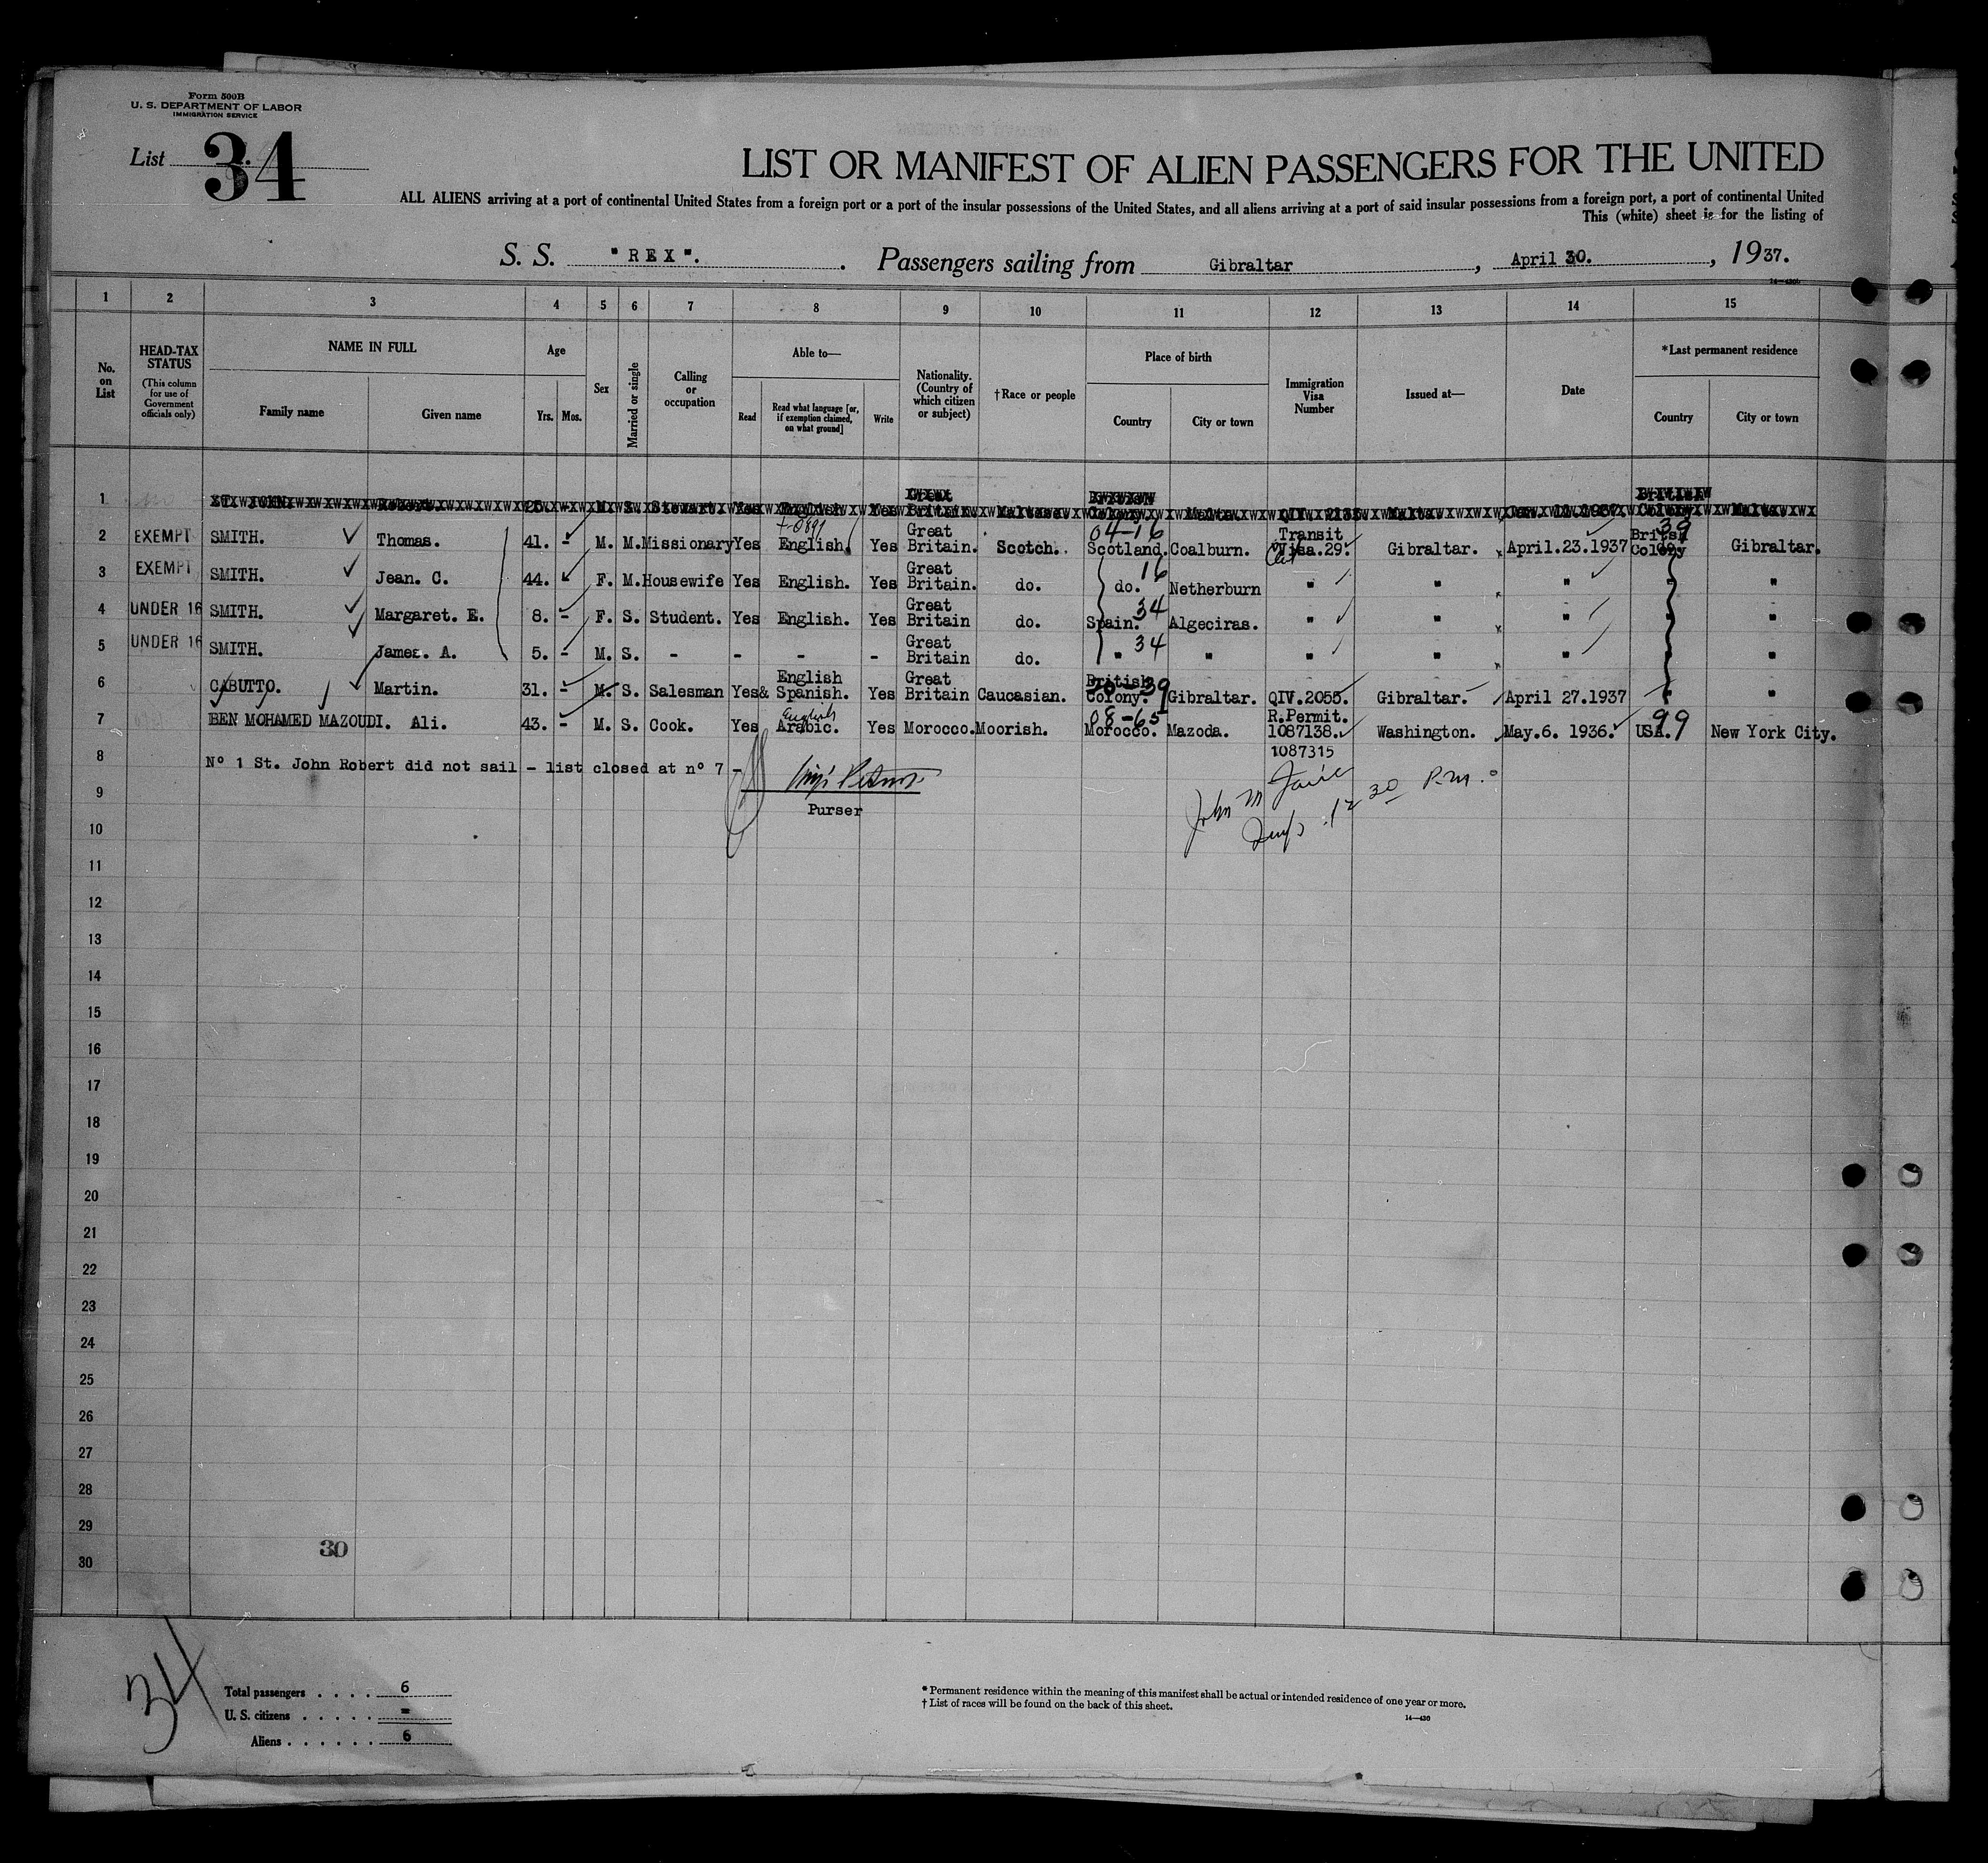 Form 500B
U. S. DEPARTMENT OF LABOR
IMMIGRATION SERVICE
List 34
LIST OR MANIFEST OF ALIEN PASSENGERS FOR THE UNITED
ALL ALIENS arriving at a port of continental United States from a foreign port or a port of the insular possessions of the United States, and all aliens arriving at a port of said insular possessions from a foreign port, a port of continental United
This (white) sheet is for the listing of
S. S. "REX". Passengers sailing from Gibraltar, April 30., 1937.
1 2 3 4 5 6 7 8 9 10 11 12 13 14 15
No. on List
HEAD-TAX STATUS (This column for use of Government officials only)
NAME IN FULL Family name Given name
Age Yrs. Mos.
Sex
Married or single
Calling or occupation
Able to— Read Read what language [or, if exemption claimed, on what ground] Write
Nationality. (Country of which citizen or subject)
†Race or people
Place of birth Country City or town
Immigration Visa Number
Issued at—
Date
*Last permanent residence Country City or town
1 ST. JOHN. Robert. 25. - M. S. Stewart. Yes English Yes Great Britain. Maltese. British Colony. Malta. QIV. Malta. 1937 British Colony Malta.
2 EXEMPT SMITH. Thomas. 41. - M. M. Missionary Yes English. Yes Great Britain. Scotch. 04-16 Scotland. Coalburn. Transit Visa.29. Gibraltar. April.23.1937 British Colony 39 Gibraltar.
3 EXEMPT SMITH. Jean. C. 44. F. M. Housewife Yes English. Yes Great Britain. do. 16 do. Netherburn " " " "
4 UNDER 16 SMITH. Margaret. E. 8. - F. S. Student. Yes English. Yes Great Britain do. 34 Spain. Algeciras. " " " "
5 UNDER 16 SMITH. James. A. 5. - M. S. - - - - Great Britain do. 34 " " " " " "
6 CABUTTO. Martin. 31. - M. S. Salesman Yes English & Spanish. Yes Great Britain Caucasian. British Colony. 39 Gibraltar. QIV.2055. Gibraltar. April 27.1937 "
7 BEN MOHAMED MAZOUDI. Ali. 43. - M. S. Cook. Yes English Arabic. Yes Morocco. Moorish. 08-65 Morocco. Mazoda. R.Permit. 1087138. Washington. May.6. 1936. USA. 99 New York City.
1087315
8 Nº 1 St. John Robert did not sail - list closed at nº 7 -
Purser
John M
12 30 P.m.
9
10
11
12
13
14
15
16
17
18
19
20
21
22
23
24
25
26
27
28
29
30
30
34
Total passengers . . . . 6
U. S. citizens . . . . . =
Aliens . . . . . . 6
* Permanent residence within the meaning of this manifest shall be actual or intended residence of one year or more.
† List of races will be found on the back of this sheet.
14—430